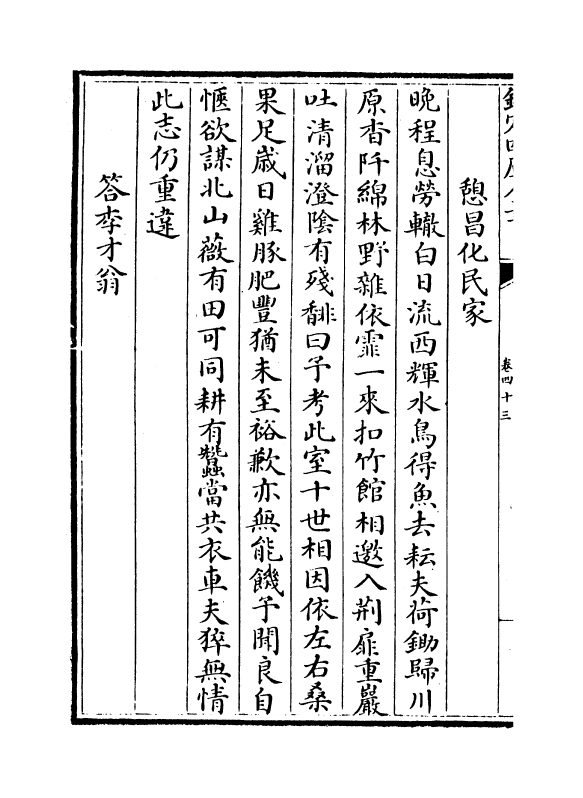 卷四十三
憩昌化民家
晚程息勞轍白日流西輝水鳥得魚去耘夫荷鋤歸川
原杳阡綿林野雜依霏一來扣竹館相邀入荆扉重巖
吐清溜澄陰有殘馡曰予考此室十世相因依左右桑
果足歲日雞豚肥豐猶未至裕歉亦無能饑予聞良自
愜欲謀北山薇有田可同耕有蠶當共衣車夫猝無情
此志仍重違
答李才翁